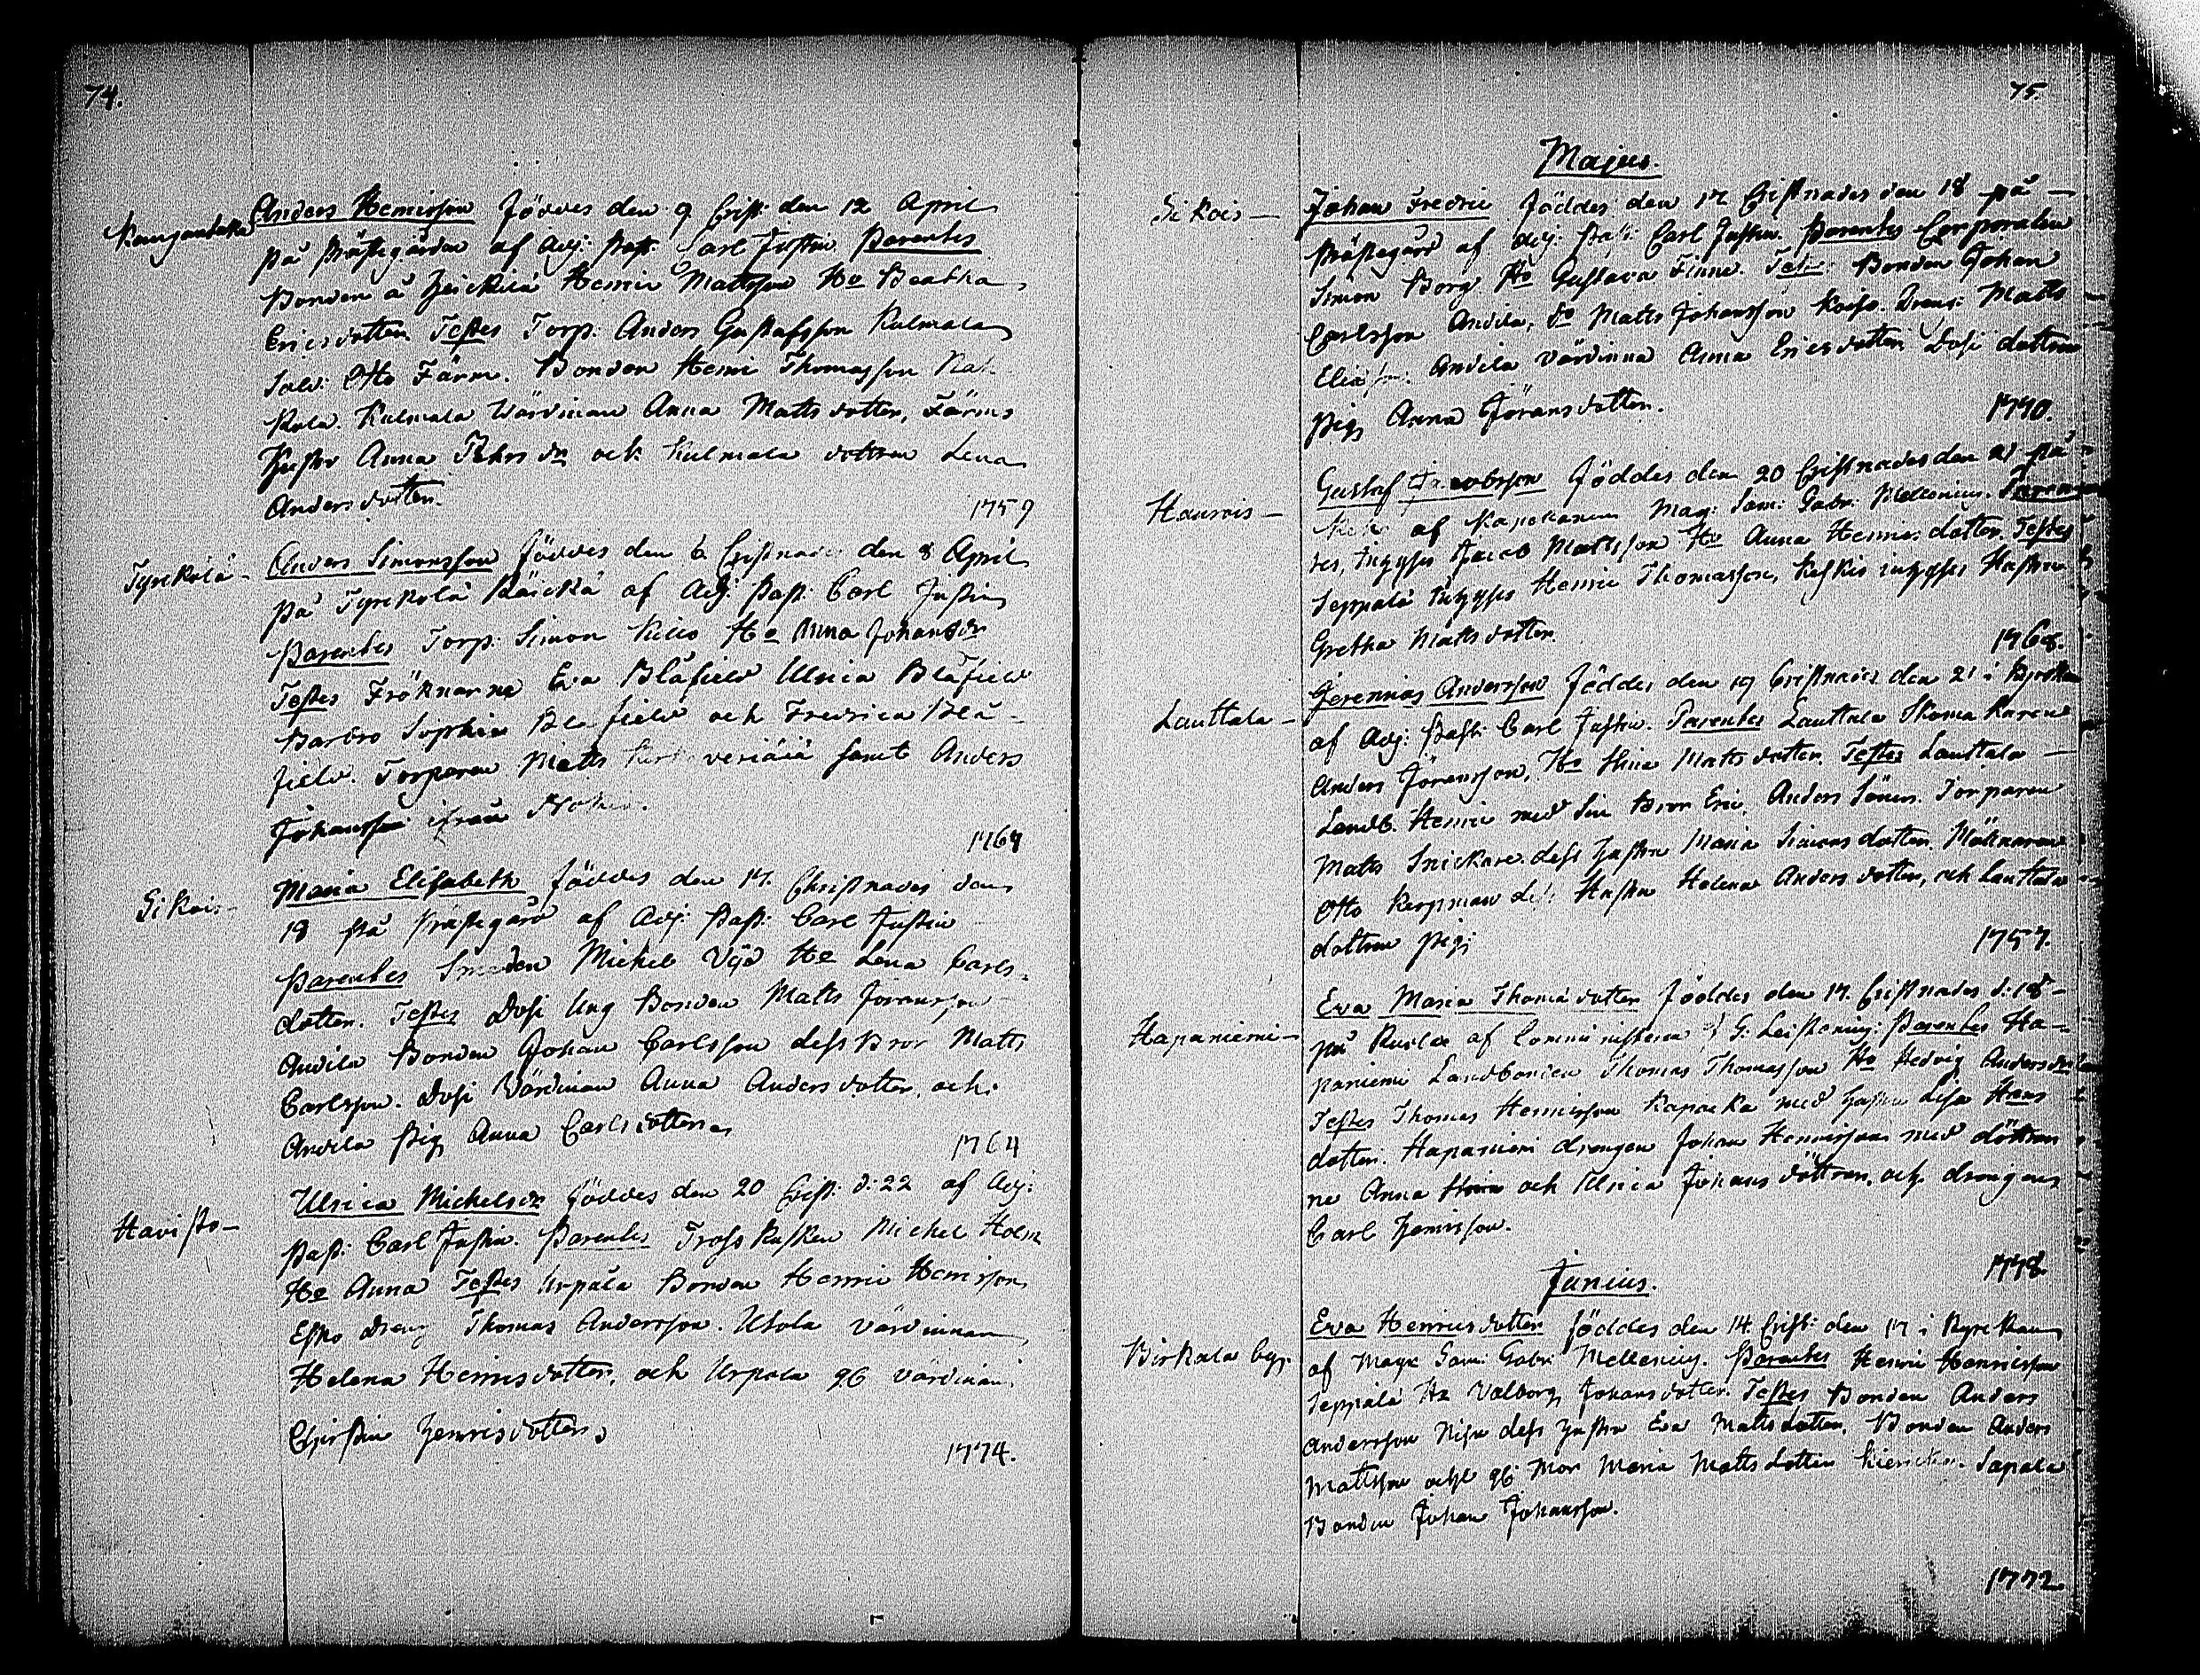 74.
Anders Henricsson föddes den 9 Crist: den 12 April
på Prästegården af Adj: Past: Carl Justin Parentes
Bonden å Henric Mattsson Ho Beatha
Ericsdotter. Testes Torp. Anders Gustafsson Kulmala
Sold: Otto Färm. Bonden Henric Thomasson
Kulmala Värdinnan Anna Mattsdotter, Färms
Hustro Anna och Kulmala dottren Lena
Andersdotter.
1759
Tyrkölä -
Anders Simonsson föddes den 6 Cristnades den 8 April
på Tyrkölä af Adj Past: Carl Justin
Parentes Torp: Simon Ho Anna Johansdr
Testes Fröknarna Eva Blåfield Ulrica Blåfield
Barbro Sophia Blåfield och Fredrica Blå-
field. Torparen Matts samt Anders
Johansson ifrån
1769
Sikois -
Maria Elisabeth föddes den 17. Christnades den
18 på Prästegård af Adj: Past: Carl Justin
Parentes Smeden Michel Ho Lena Carls-
dotter. Testes Dosi Ung Bonden Matts Jöransson
Anvila Bonden Johan Carlsson dess Bror Matts
Carlsson. Dosi Värdinnan Anna Andersdotter, och
Anvila Pig Anna Carlsdotter
1764
Havisto -
Ulrica Michelsdr föddes den 20 Crist: d: 22 af Adj:
Past: Carl Justin. Parentes Michel Holm
Ho Anna Testes Urpala Bonden Henric Henricsson
Esko Dreng Thomas Andersson. Utola värdinnan
Helena Henricsdotter, och Urpala värdinnan
Christin Henricsdotter
1774.
75.
Majus.
Sikois -
Johan Fredric föddes den 17 Cristnades den 18 på -
Prästegård af Adj: Past: Carl Justin. Parentes Corporalen
Simon Borg Ho Gustava Finne. Testes Bonden Johan
Carlsson Anvila, do Matts Johansson Dreng: Matts
Anvila värdinna Anna Ericsdotter Dosi dottren
Pig Anna Jöransdotter.
1770.
Haurois -
Gustaf Jacobsson föddes den 20 Cristnades den 21 på
af Mag: Sam: Gabr: Mellenius. Paren-
tes, Inhyses Jacob Mattsson Ho Anna Henricsdotter. Testes
Seppälä Inhyses Henric Thomasson, Keskis inhyses Hustru
Gretha Mattsdotter.
1768.
Lauttala -
Jeremias Andersson föddes den 19 Cristnades den 21 i Kyrckan
af Adj: Past: Carl Justin. Parentes Lauttala Skomakaren
Anders Jöransson, Ho Stina Mattsdotter. Testes Lauttala -
Landb. Henric med sin bror Eric. Anders Söner. Torparen
Matts Snickare dess hustru Maria Simonsdotter. Mölnaren
Otto dess Hustru Helena Andersdotter, och Lauttala
dottren Pig;
1757.
Hapaniemi -
Eva Maria Thomædotter föddes den 17. Cristnades d: 18 -
på af Comministern G: Parentes Ha-
paniemi Landbonden Thomas Thomasson Ho Hedvig Andersdr
Testes Thomas Henricsson med hustru Lisa Hans
dotter. Hapaniemi drengen Johan Henricsson med döttrar
ne Anna och Ulrica Johans döttrar, och drengen
Carl Henricsson.
1778.
Junius.
Birkala by.
Eva Henricsdotter föddes den 14. Crist: den 17 i Kyrckan
af Mag: Sam: Gabr: Mellenius. Parentes Henric Henricsson
Seppälä Ho Valborg Johansdotter. Testes Bonden Anders
Andersson dess hustru Eva Mattsdotter. Bonden Anders
Mattsson och Mor Maria Mattsdotter Sapala
Bonden Johan Johansson.
1772.